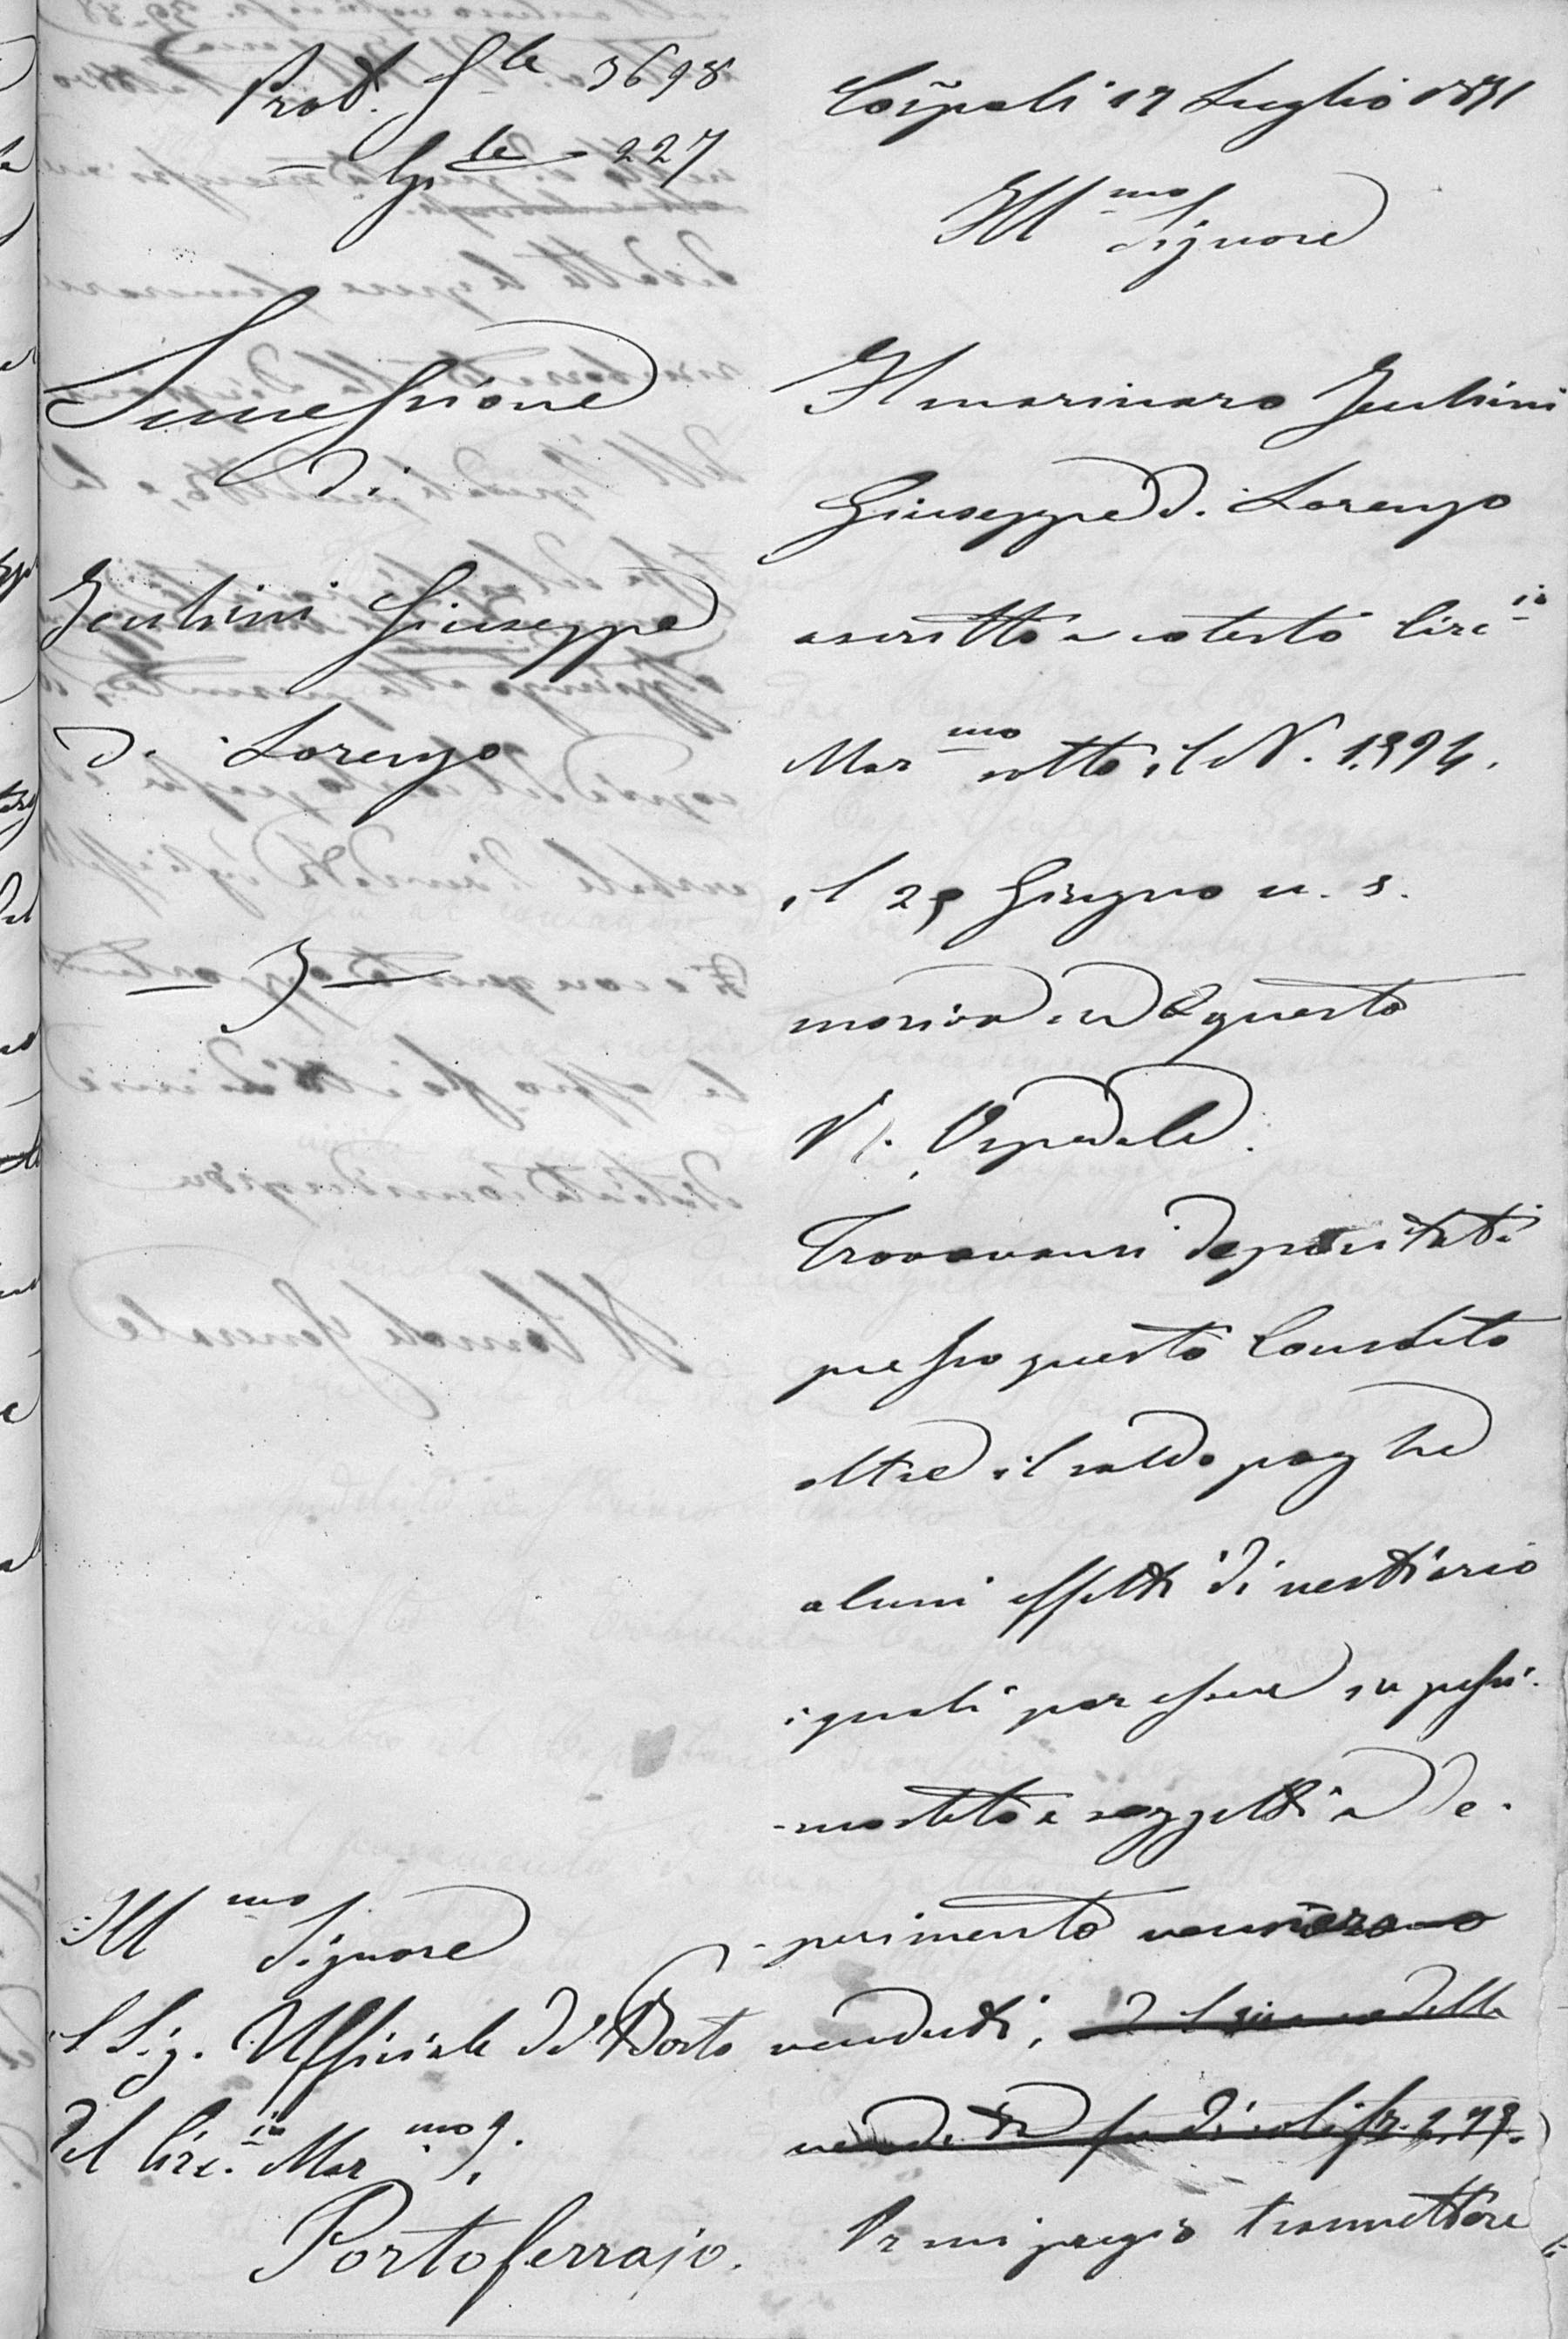 Prot. Gle 3698
— Gle - 227
Successione
di
Giuseppe
di Lorenzo
— 3 —
Illmo Signore
il Sig. Ufficiale di Porto
del Circ.io Marmo
Portoferrajo.
Costpoli 17 Luglio 1871
Illmo Signore
Il marinaro
Giuseppe di Lorenzo
ascritto a cotesto Circio
Marmo sotto il N. 1394.
il 29 Giugno u. s.
moriva in questo
N. Ospedale.
Trovavansi depositati
presso questo Consolato
oltre il saldo paghe
alcuni effetti di vestiario
i quali per essere in pessi-
-mo stato e soggetti a de-
-perimento vennero
venduti, il della
vendita fu di soli fr. 2,79.
Or mi pregio trasmettere